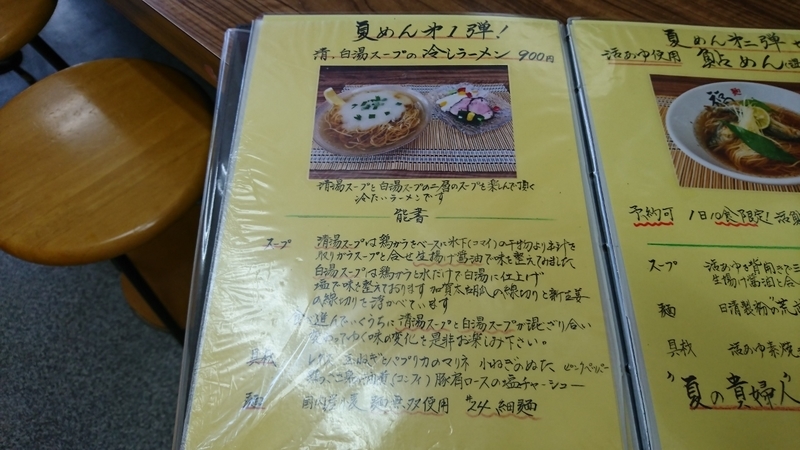 夏めん第1弾!
清、白湯スープの冷しラーメン 900円
清湯スープと白湯スープの二層のスープを楽しんで頂く
冷たいラーメンです
能書
スープ 清湯スープは鶏がらをベースに氷下(コマイ)の干物より出汁を
取りガラスープと合せ生揚げ醤油で味を整えてみました
白湯スープは鶏がらと水だけで白湯に仕上げ
塩で味を整えております 加賀太胡瓜の線切りと新生姜
の線切りを浮かべています
進んでいくうちに清湯スープと白湯スープが混ざり合い
ゆく味の変化を是非お楽しみ下さい。
具材 玉ねぎとパプリカのマリネ 小ねぎのぬた ピンクペッパー
(コンフィ) 豚肩ロースの塩チャーシュー
麺 使用 #24 細麺
夏めん第二弾
活あゆ使用 鮎めん
予約可 1日10食限定!
スープ 活あゆを背開きで
生揚げ醤油と合
麺 日清製粉の
具材 活あゆ素
"夏の貴婦人